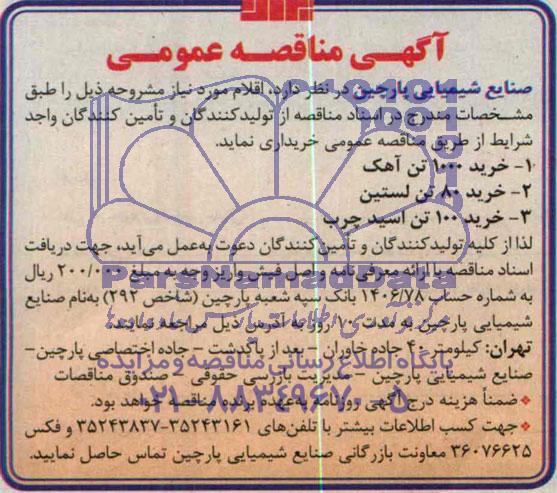 آگهی مناقصه عمومی
صنایع شیمیایی پارچین در نظر دارد، اقلام مورد نیاز مشروحه ذیل را طبق
مشخصات مندرج در اسناد مناقصه از تولیدکنندگان و تأمین کنندگان واجد
شرایط از طریق مناقصه عمومی خریداری نماید.
۱- خرید ۱۰۰۰ تن آهک
۲- خرید ۸۰ تن لستین
۳- خرید ۱۰۰ تن اسید چرب
لذا از کلیه تولیدکنندگان و تأمین‌کنندگان دعوت به‌عمل می‌آید، جهت دریافت
اسناد مناقصه با ارائه معرفی‌نامه و اصل فیش واریز وجه به مبلغ ۲۰۰/۰۰۰ ریال
به شماره حساب ۱۴۰۶/۷۸ بانک سپه شعبه پارچین (شاخص ۲۹۲) به‌نام صنایع
شیمیایی پارچین به مدت ۱۰ روز به آدرس ذیل مراجعه نمایند.
تهران: کیلومتر ۴۰ جاده خاوران – بعد از پاکدشت – جاده اختصاصی پارچین–
صنایع شیمیایی پارچین – مدیریت بازرسی حقوقی – صندوق مناقصات
ضمناً هزینه درج آگهی روزنامه به‌عهده برنده مناقصه خواهد بود.
جهت کسب اطلاعات بیشتر با تلفن‌های ۳۵۲۴۳۱۶۱-۳۵۲۴۳۸۳۷ و فکس
۳۶۰۷۶۶۲۵ معاونت بازرگانی صنایع شیمیایی پارچین تماس حاصل نمایید.
ParsNamadData
پایگاه اطلاع رسانی مناقصه و مزایده
۰۲۱-۸۸۳۴۹۶۷۰-۵